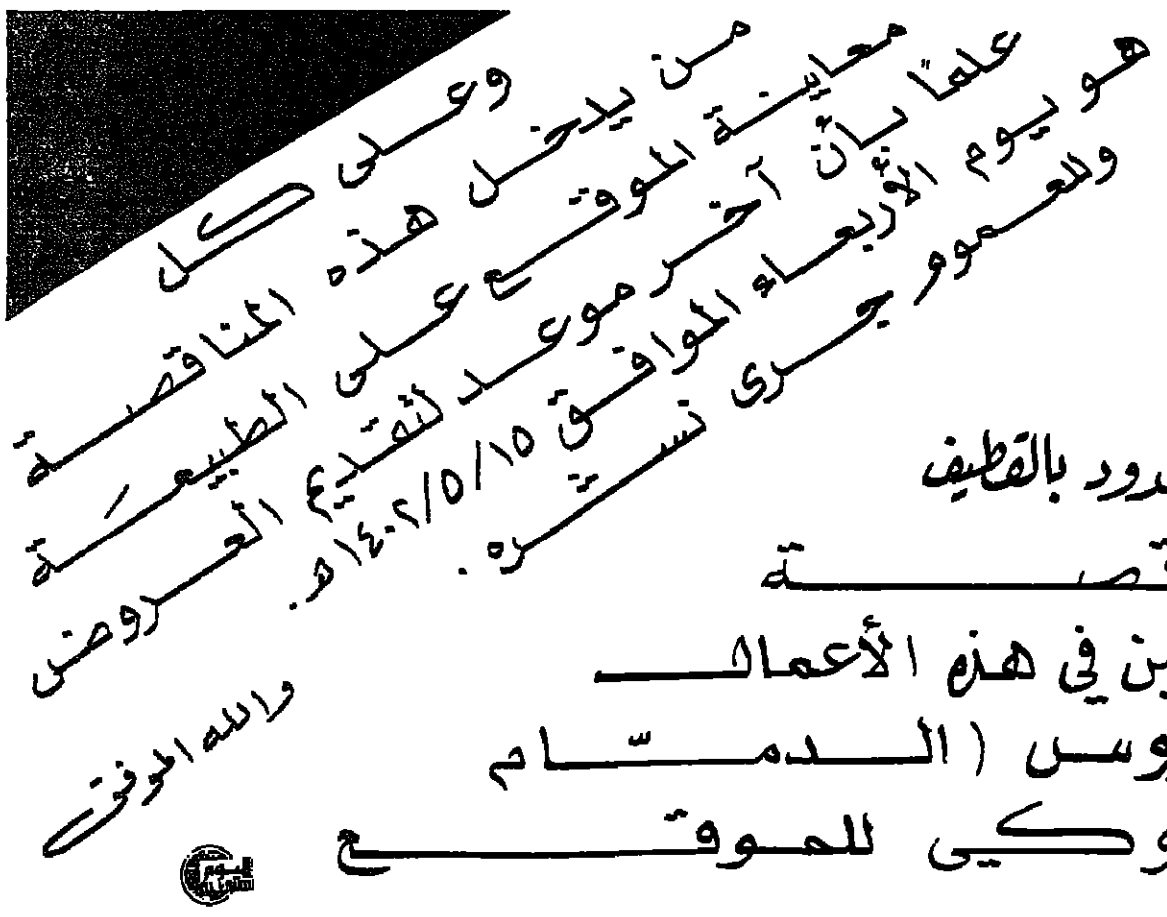 وعلى كل
من يدخل هذه المناقصة
معاينة الموقع على الطبيعة
علماً بأن آخر موعد لتقديم العروض
هو يوم الأربعاء الموافق ١٤٠٢/٥/١٥هـ.
وللعموم جرى نشره.
والله الموفق
بالقطيف
في هذه الأعمال
(الدمّام
للموقع